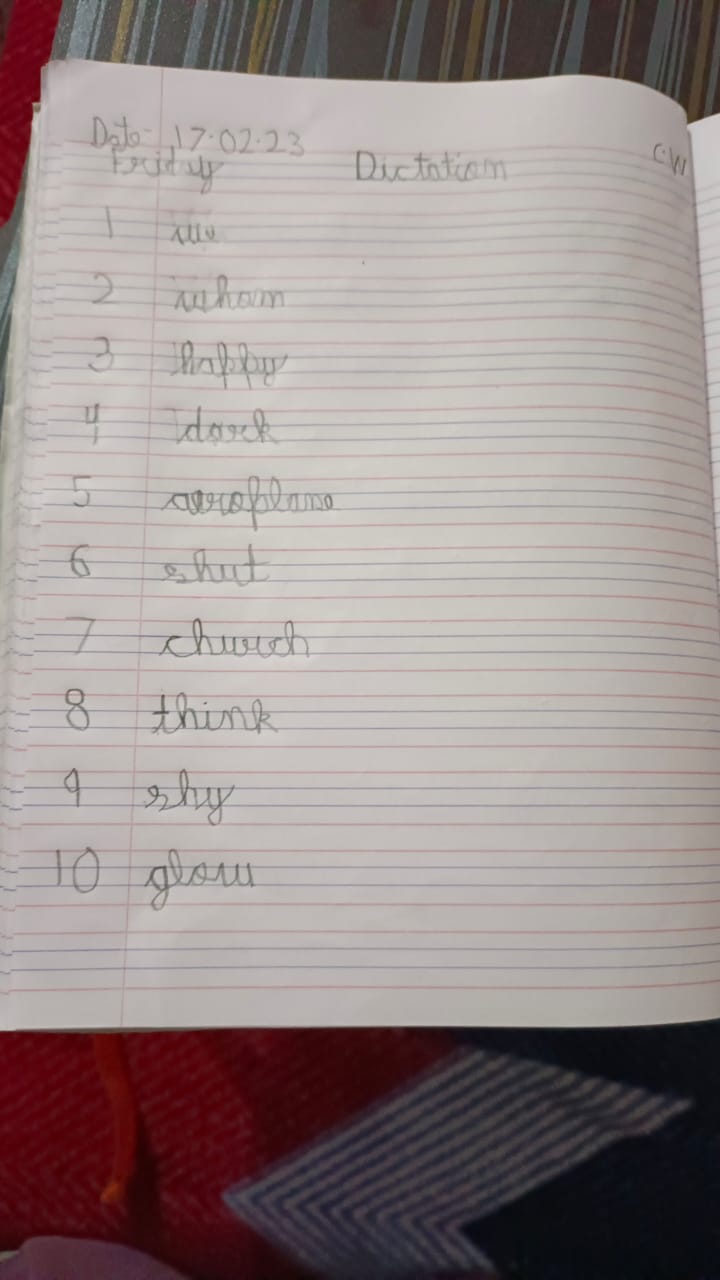 Date- 17.02.23
Friday Dictation C.W
1 we
2 wham
3 happy
4 dark
5 aeroplane
6 shut
7 church
8 think
9 shy
10 glow